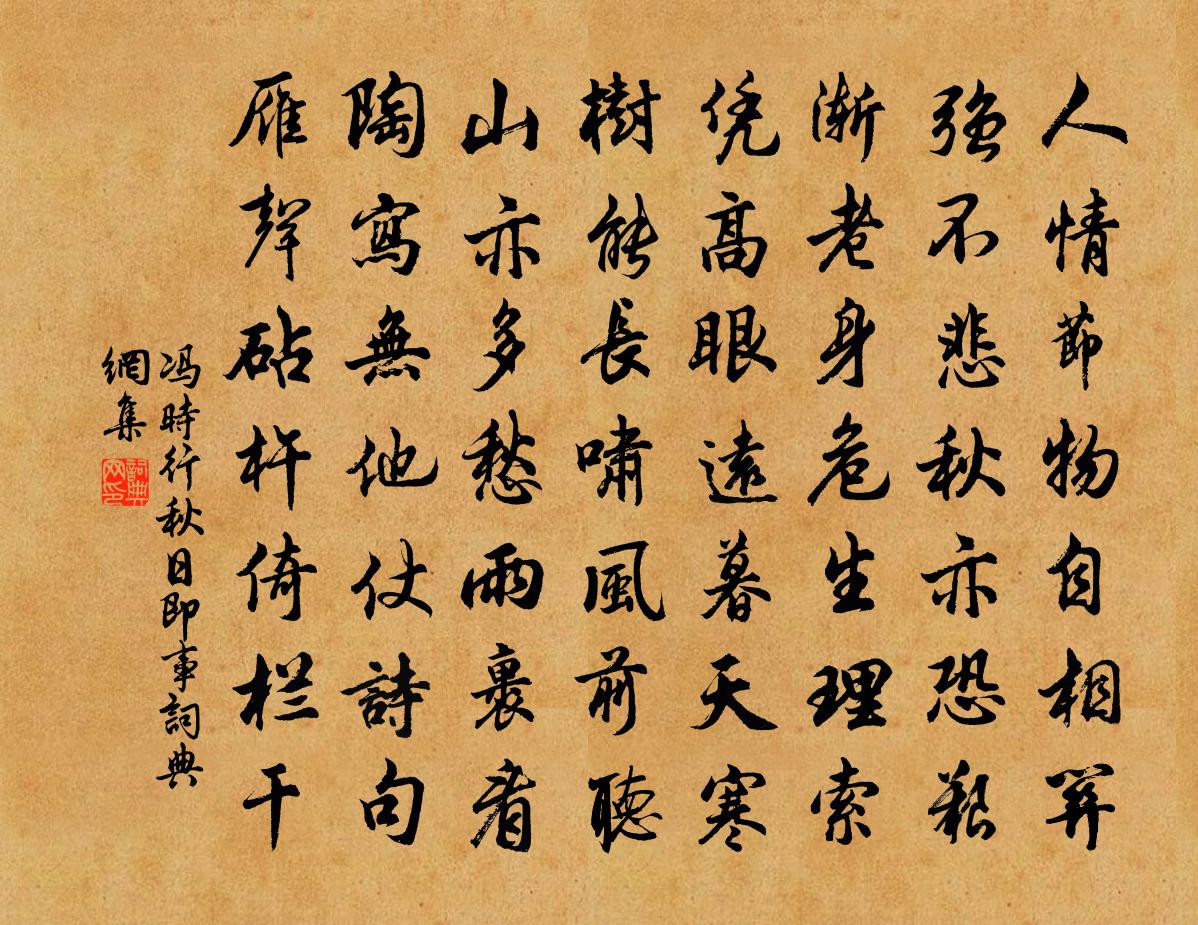 人情節物自相關
強不悲秋亦恐難
漸老身危生理索
凭高眼遠暮天寒
樹能長嘯風前聽
山亦多愁雨裏看
陶寫無他仗詩句
雁聲砧杵倚栏干
冯時行秋日即事詞典
網集
詞典
网印